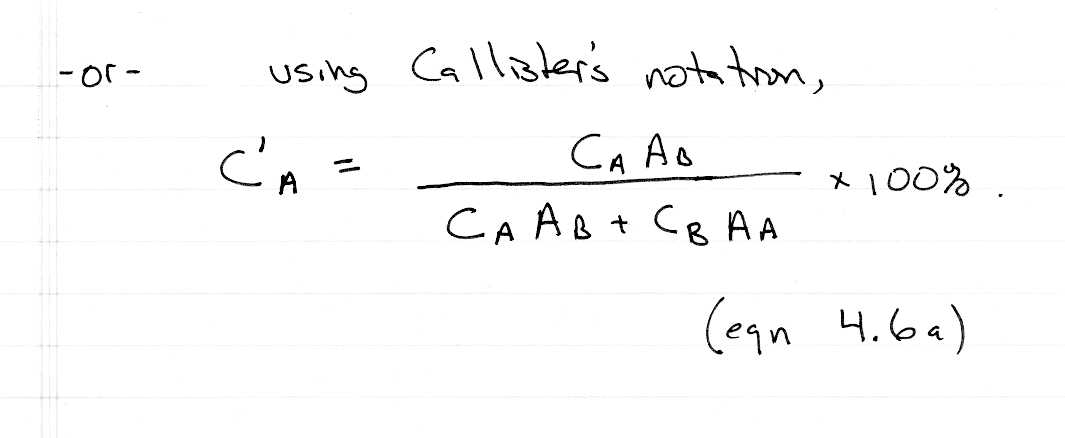 -or- using Callister's notation,
C'A = CA AB / CA AB + CB AA x 100% .
(eqn 4.6a)